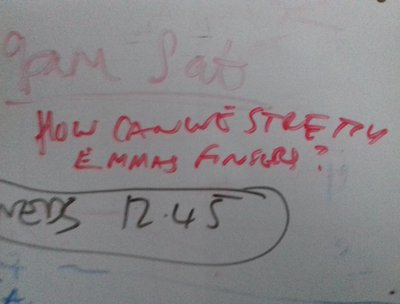 9am Sat
HOW CAN WE STRETCH
EMMAS FINGERS?
WEDS 12.45